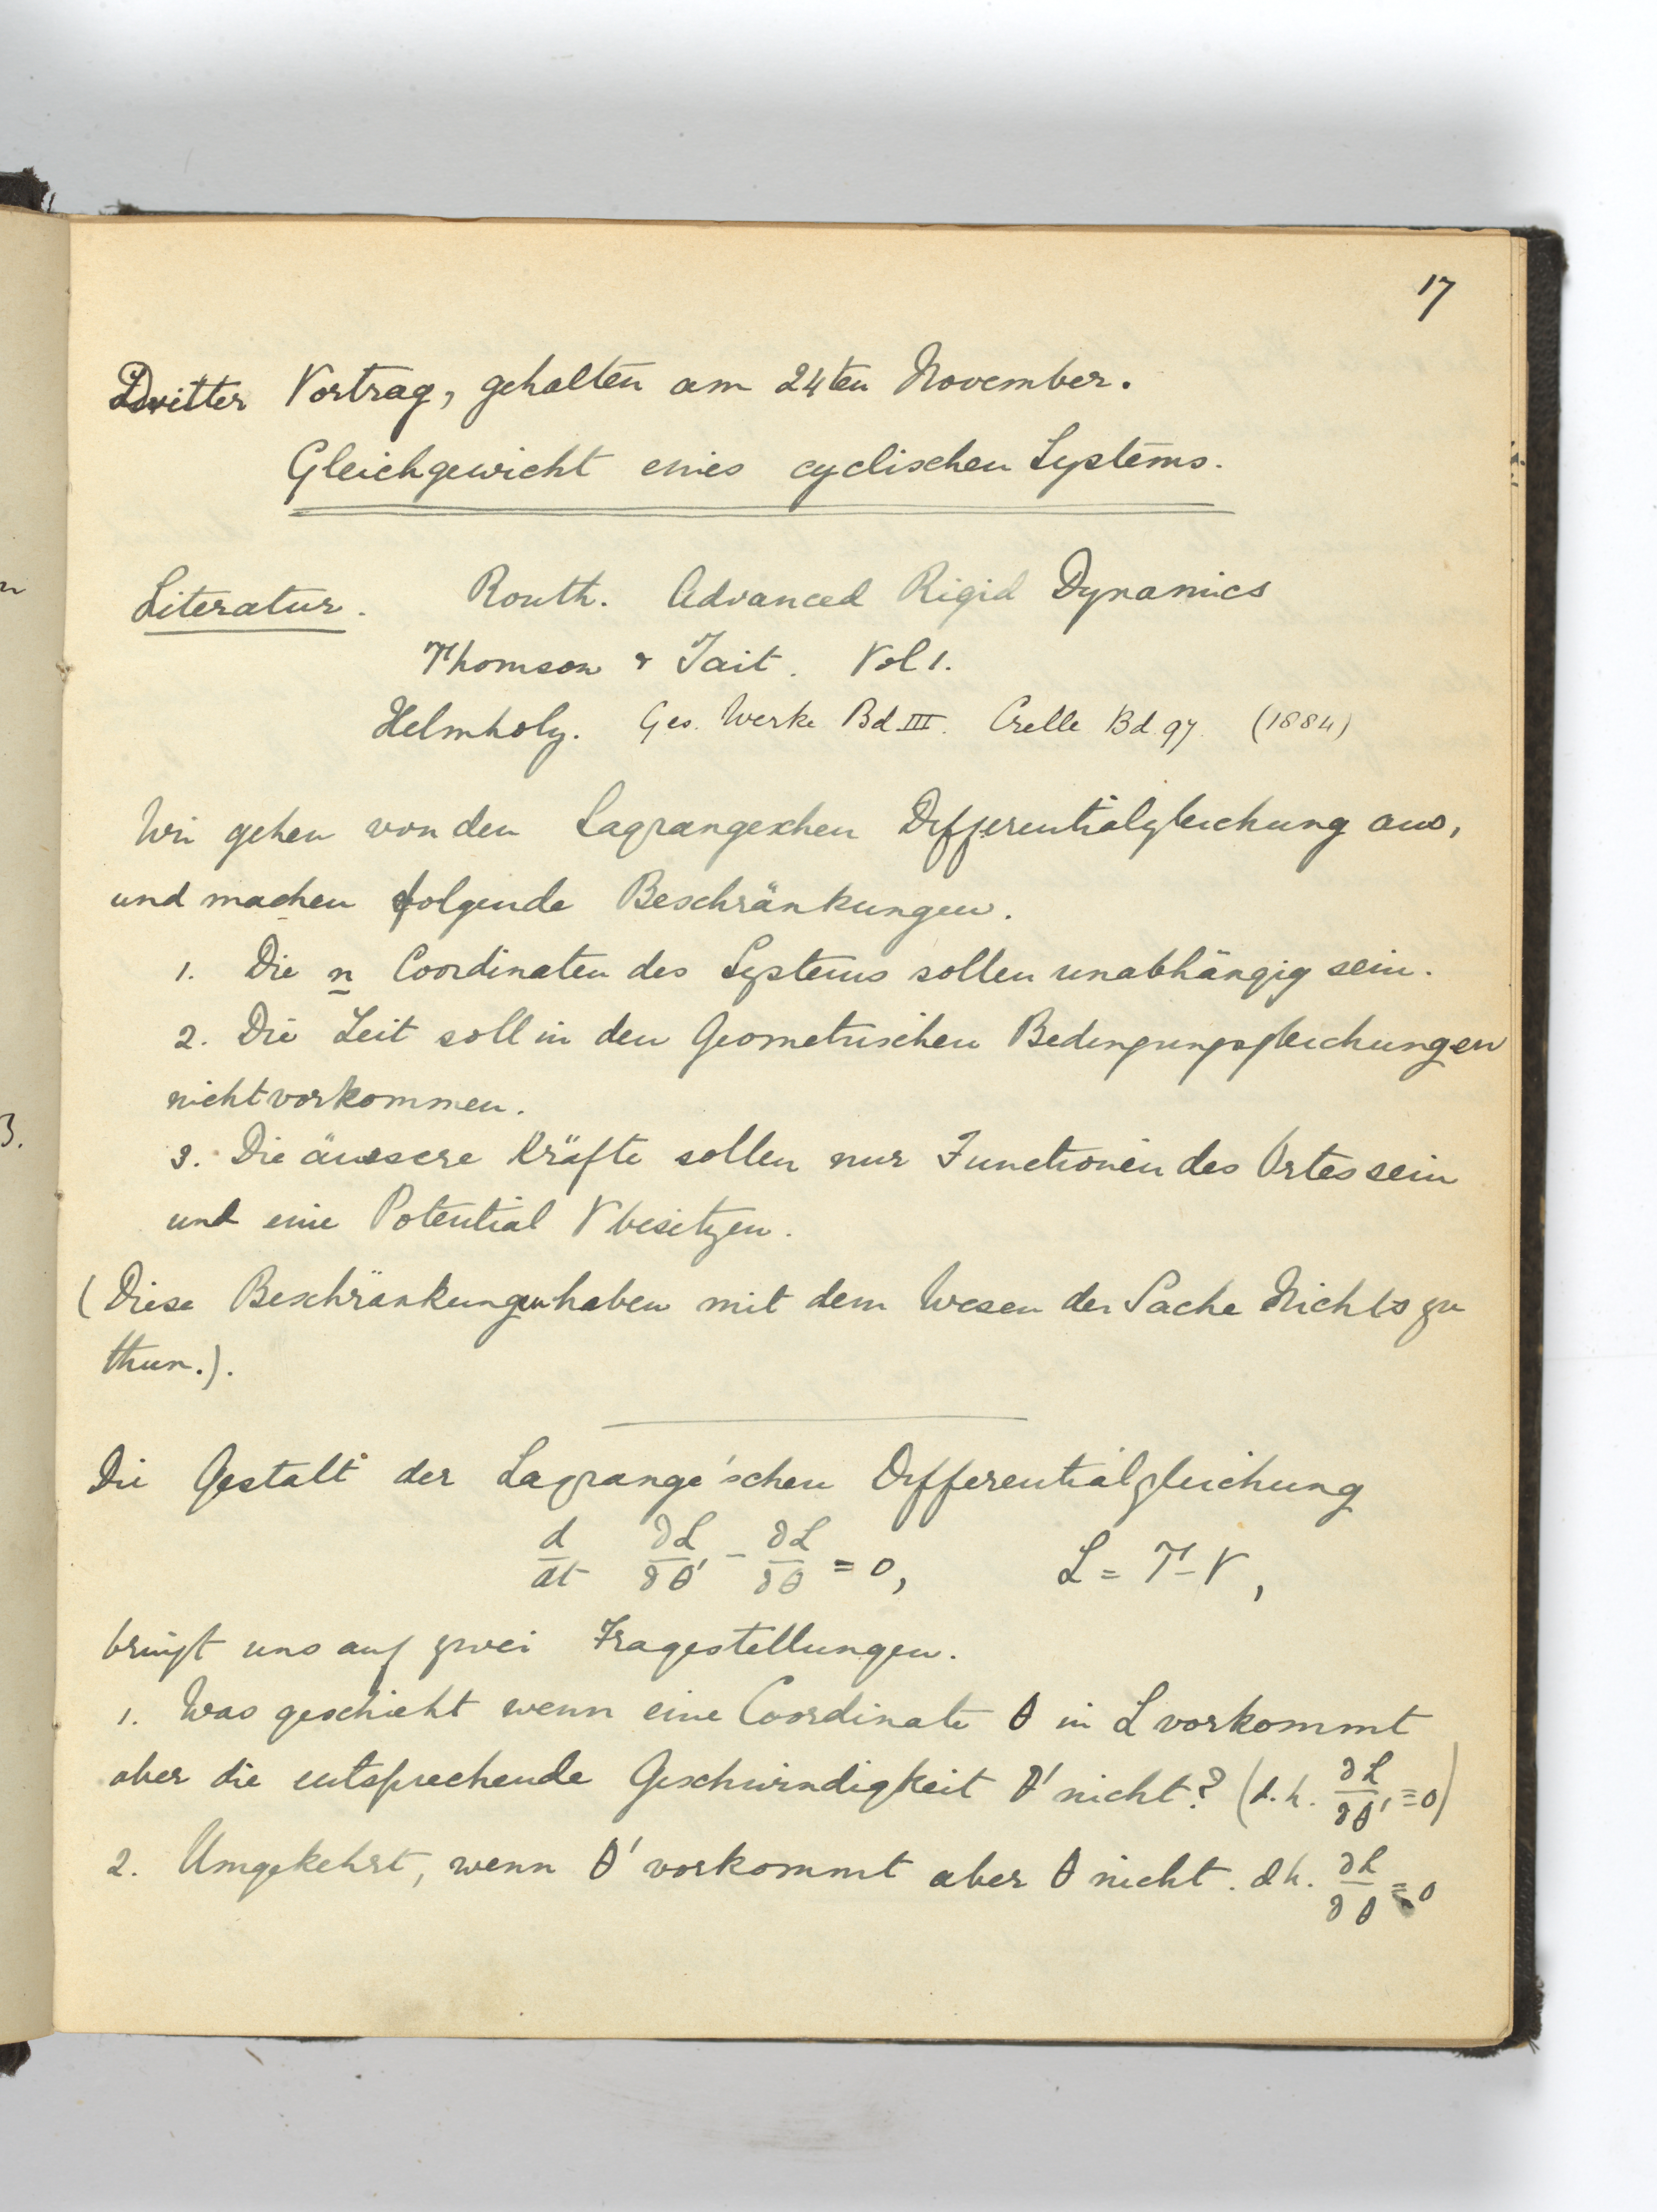 17
Dritter Vortrag, gehalten am 24ten November.
Gleichgewicht eines cyclischen Systems.
Literatur. Routh. Advanced Rigid Dynamics
Thomson & Tait. Vol 1.
Helmholz. Ges. Werke Bd. III. Crelle Bd. 97. (1884)
Wir gehen von den Lagrangeschen Differentialgleichung aus,
und machen folgende Beschränkungen.
1. Die n Coordinaten des Systems sollen unabhängig sein.
2. Die Zeit soll in den Geometrischen Bedingungsgleichungen
nicht vorkommen.
3. Die äussere Kräfte sollen nur Functionen des Ortes sein
und eine Potential V besitzen.
(Diese Beschränkungen haben mit dem Wesen der Sache Nichts zu
thun.).
Die Gestalt der Lagrange'schen Differentialgleichung
d/dt ∂L/∂θ' - ∂L/∂θ = 0, L = T - V,
bringt uns auf zwei Fragestellungen.
1. Was geschieht wenn eine Coordinate θ in L vorkommt
aber die entsprechende Geschwindigkeit θ' nicht? (d.h. ∂L/∂θ' = 0)
2. Umgekehrt, wenn θ' vorkommt aber θ nicht. d h. ∂L/∂θ = 0
n
3.